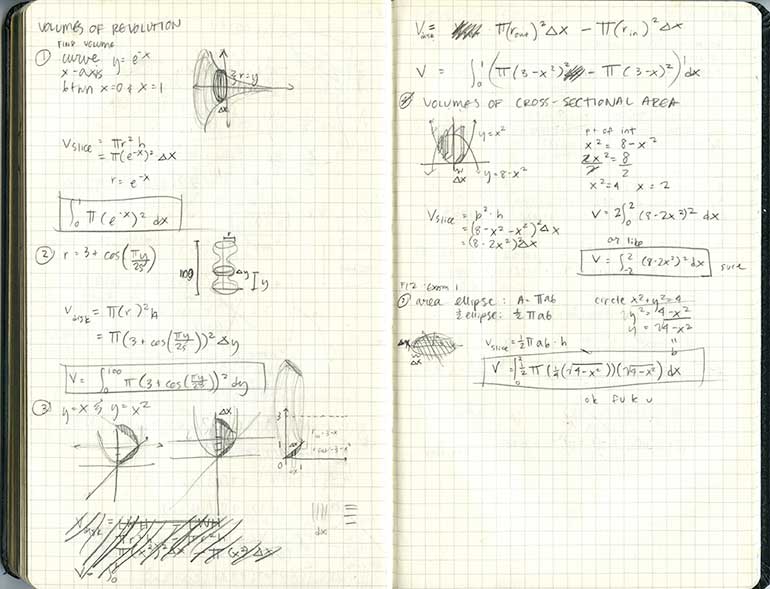 VOLUMES OF REVOLUTION
FIND VOLUME
① curve y = e^-x
x-axis
btwn x=0 & x=1
r=y
Δx
V slice = πr²h
= π(e^-x)² Δx
r = e^-x
∫₀¹ π(e^-x)² dx
② r = 3 + cos(πy/25)
r
100
Δy
y
V disk = π(r)²h
= π(3 + cos(πy/25))² Δy
V = ∫₀¹⁰⁰ π(3 + cos(πy/25))² dy
③ y=x & y=x²
Δx
3
1
0
1
dx
V disk =
∫₀
V disk = π(r out)²Δx − π(r in)²Δx
V = ∫₀¹ (π(3-x²)² − π(3-x)²) dx
④ VOLUMES OF CROSS-SECTIONAL AREA
y=x²
y=8-x²
Δx
pt of int
x² = 8-x²
2x² = 8
2 2
x²=4 x = 2
V slice = b²·h
= (8-x²-x²)²Δx
= (8-2x²)²Δx
V = 2∫₀² (8-2x²)² dx
or like
V = ∫₋₂² (8-2x²)² dx
sure
Exam 1
area ellipse: A = πab
½ ellipse: ½πab
circle x²+y²=4
√y² = √4-x²
y = √4-x²
"
b
Δx
V slice = ½πab·h
V = ∫₀² ½π(¼(√4-x²))(√4-x²) dx
ok fuk u